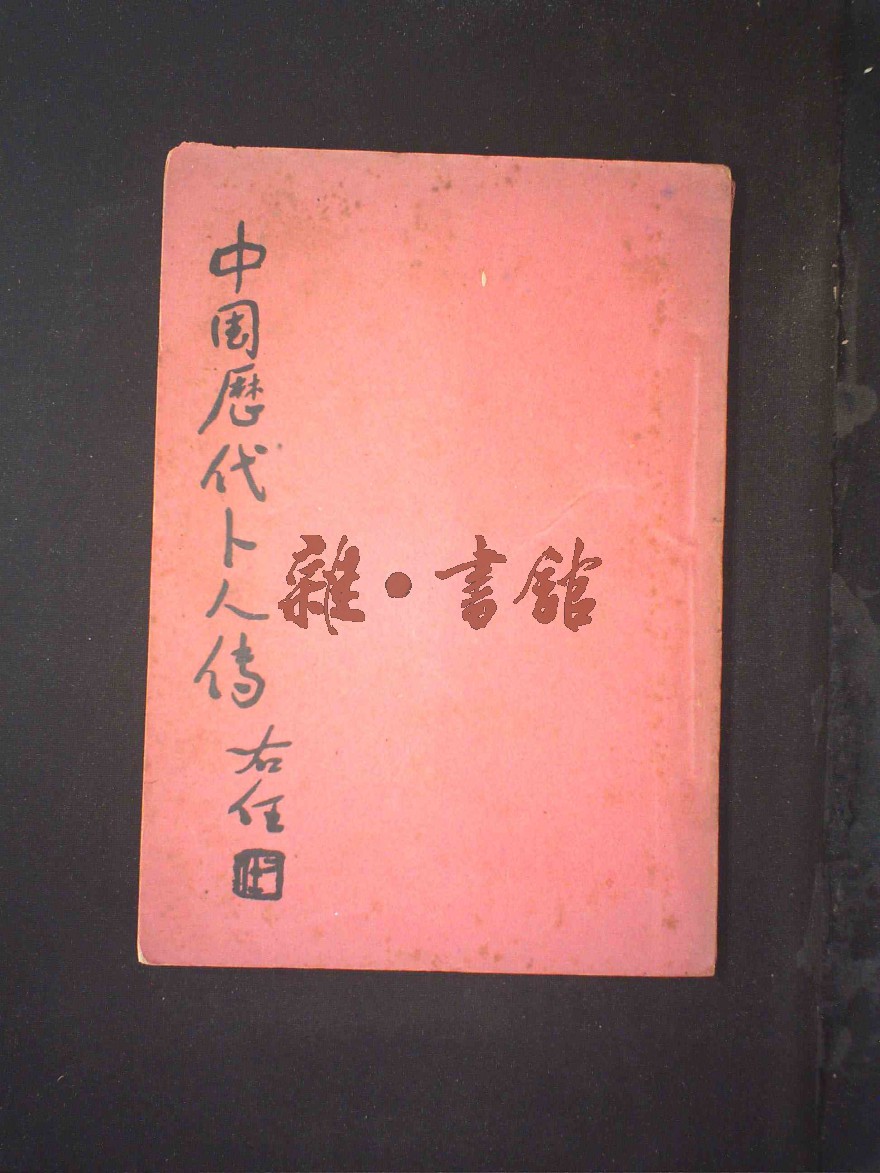 中国歷代卜人傳
右任
雜·書館